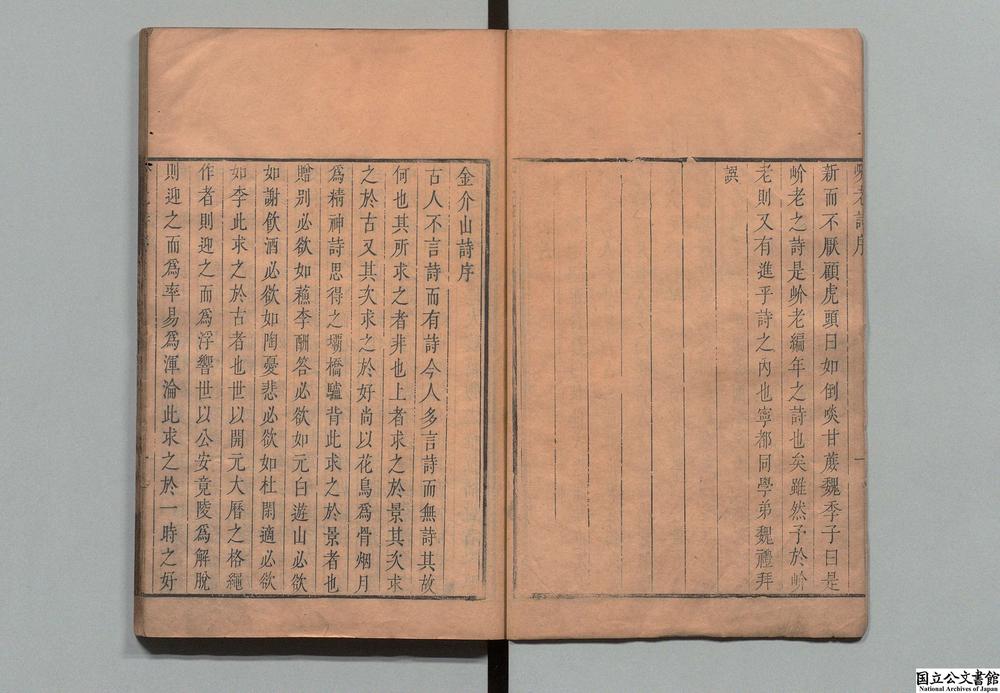 岕老詩序 一
新而不厭顧虎頭曰如倒啖甘蔗魏季子曰是
岕老之詩是岕老編年之詩也矣雖然予於岕
老則又有進乎詩之內也寧都同學弟魏禮拜
譔
金介山詩序
古人不言詩而有詩今人多言詩而無詩其故
何也其所求之者非也上者求之於景其次求
之於古又其次求之於好尚以花鳥為骨烟月
爲精神詩思得之壩橋驢背此求之於景者也
贈別必欲如蘇李酬答必欲如元白遊山必欲
如謝飲酒必欲如陶憂悲必欲如杜閑適必欲
如李此求之於古者也世以開元大曆之格繩
作者則迎之而爲浮響世以公安竟陵爲解脫
則迎之而爲率易爲渾淪此求之於一時之好
国立公文書館
National Archives of Japan